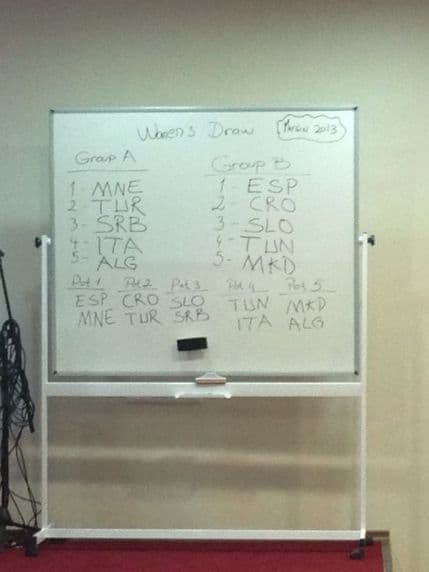 Women's Draw
Mersin 2013
Group A
1 - MNE
2 - TUR
3 - SRB
4 - ITA
5 - ALG
Group B
1 - ESP
2 - CRO
3 - SLO
4 - TUN
5 - MKD
Pot 1 Pot 2 Pot 3 Pot 4 Pot 5
ESP CRO SLO TUN MKD
MNE TUR SRB ITA ALG